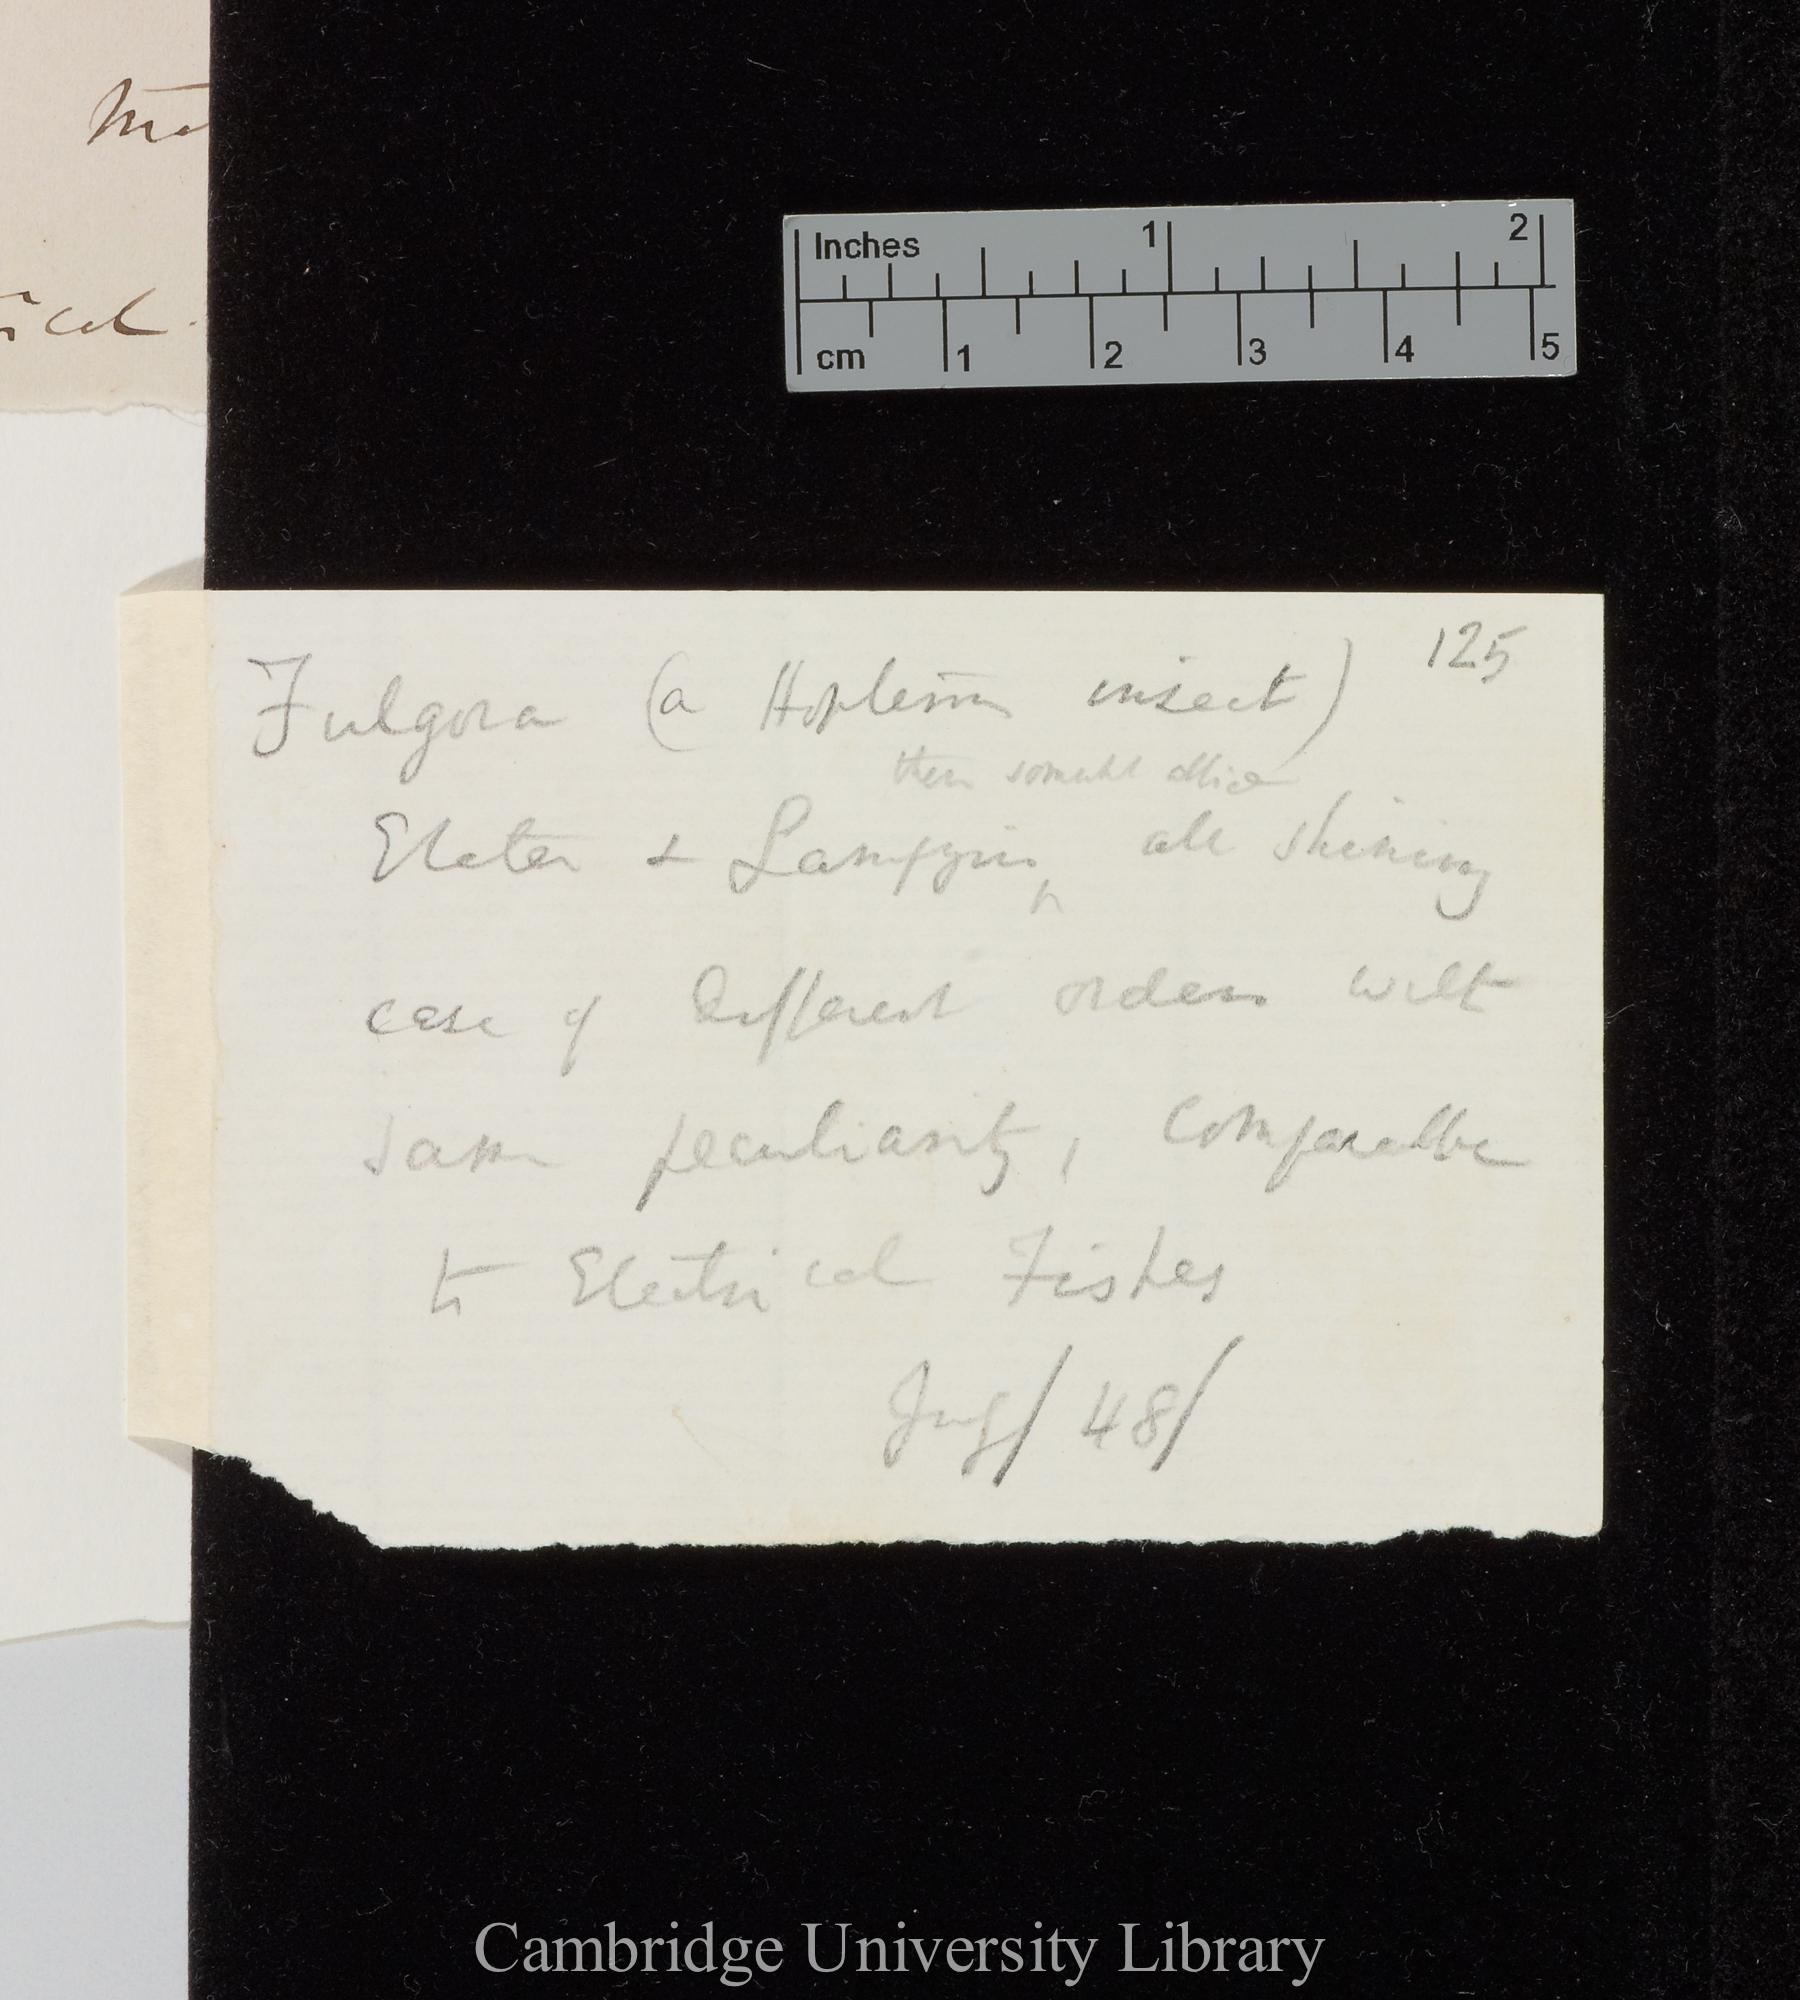 Mo
ical.
Inches 1 2
cm 1 2 3 4 5
125
Fulgora (a insect)
these somewhat allied
Elater & Lampyris, all shining
case of different orders with
same peculiarity, comparable
to Electrical Fishes
/48/
Cambridge University Library